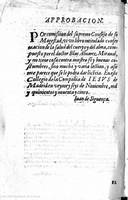 APPROBACION.
POr comission del supremo Consejo de su
Magestad, vi vn libro intitulado conser
uacion de la salud del cuerpo y del alma, com-
puesto por el doctor Blas Aluarez Miraual,
y no tiene cosa contra nuestra fe y buenas co-
stumbres, sino mucha y varia lection, y assi
me parece que se le podra dar licẽcia. En este
Collegio de la Compañia de IESVS de
Madrid en veynte y seys de Nouiembre, mil
y quinientos y nouenta y cinco.
Iuan de Siguença.